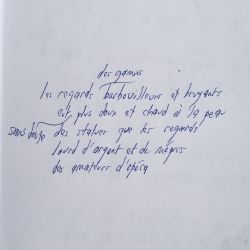 des gamins
les regards barbouilleurs et bruyants
est plus doux et chaud à la peau
sans doute des statues que les regards
lourd d'argent et de mépris
des amateurs d'opéra